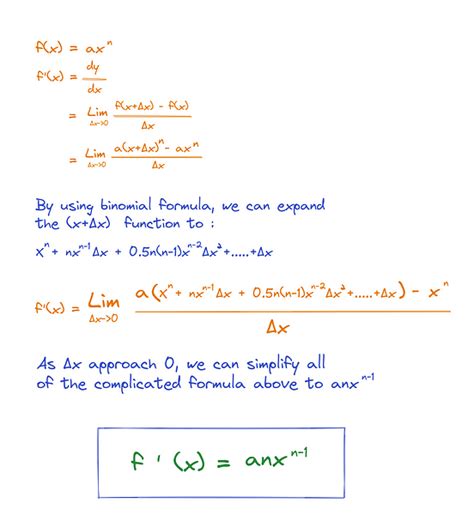 f(x) = axⁿ
f'(x) = dy/dx
= Lim Δx->0 f(x+Δx) - f(x) / Δx
= Lim Δx->0 a(x+Δx)ⁿ - axⁿ / Δx
By using binomial formula, we can expand
the (x+Δx) function to :
xⁿ + nxⁿ⁻¹Δx + 0.5n(n-1)xⁿ⁻²Δx²+.....+Δx
f'(x) = Lim Δx->0 a(xⁿ + nxⁿ⁻¹Δx + 0.5n(n-1)xⁿ⁻²Δx²+.....+Δx) - xⁿ / Δx
As Δx approach 0, we can simplify all
of the complicated formula above to anxⁿ⁻¹
f '(x) = anxⁿ⁻¹